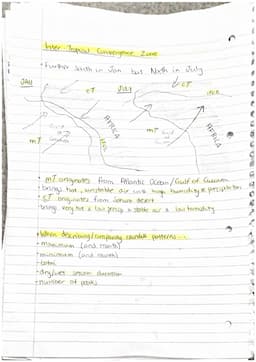 Inter Tropical Convergence Zone
• Further South in Jan but North in July
JAN
JULY
cT
cT
ITCZ
mT
mT
AFRICA
AFRICA
ITCZ
• mT originates from Atlantic Ocean/Gulf of Guinea
• brings hot, unstable air with high humidity & precipitation
• cT originates from Sahara desert
• brings very hot & low precip & stable air & low humidity
• When describing/comparing rainfall patterns...
- maximum (and month)
- minimum (and month)
- total
- dry/wet season duration
- number of peaks